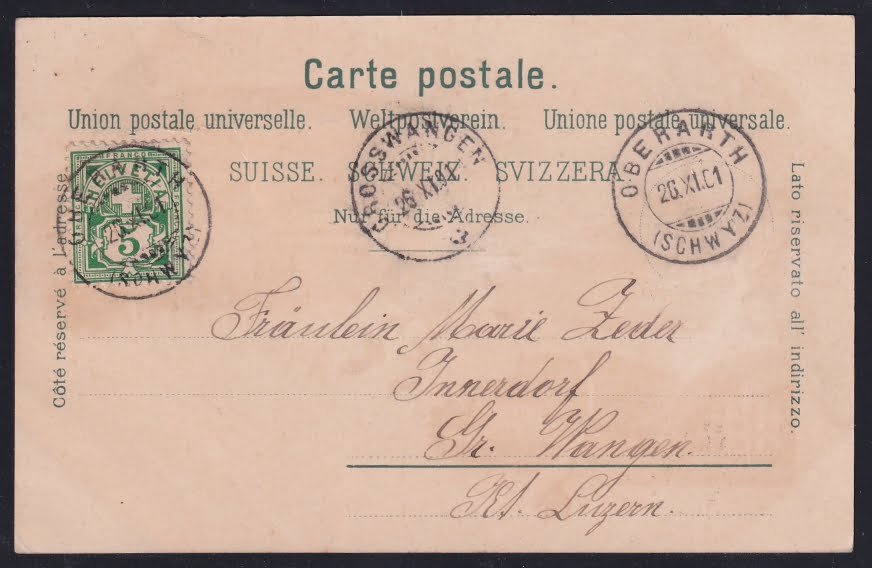 Carte postale.
Union postale universelle. Weltpostverein. Unione postale universale.
SUISSE. SCHWEIZ. SVIZZERA.
Nur für die Adresse.
Côté réservé à l'adresse.
Lato riservato all' indirizzo.
FRANCO
HELVETIA
5
OBERARTH
(SCHWYZ)
GROSSWANGEN
26.XI.01
OBERARTH
26.XI.01
(SCHWYZ)
Fräulein Marie Zeder
Innerdorf
Gr. Wangen.
Kt. Luzern.